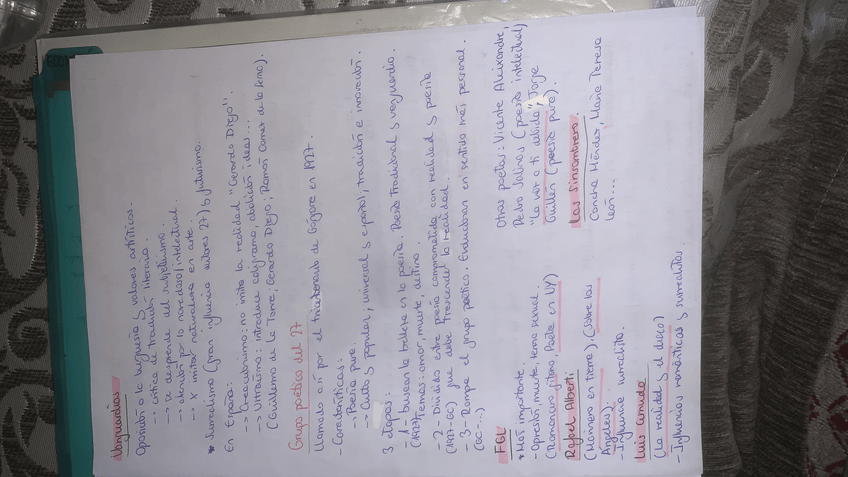 Vanguardias
Oposición a la burguesía y valores artísticos.
-> crítica de tradición literaria.
-> se desprende del subjetivismo.
-> atención por lo novedoso/intelectual.
-> X imitar naturaleza en arte.
* Surrealismo (gran influencia autores 27) y futurismo.
En España:
-> Creacionismo: no imita la realidad "Gerardo Diego".
-> Ultraísmo: introduce caligrama, abolición ideas...
(Guillermo de la Torre, Gerardo Diego, Ramón Gómez de la Serna).
Grupo poético del 27
Llamado así por el tricentenario de Góngora en 1927.
- Características:
-> Poesía pura.
-> Culto y popular, universal y español, tradición e innovación.
3 etapas:
- 1 - buscan la belleza en la poesía. Poesía tradicional y vanguardia.
(1927) Temas: amor, muerte, destino.
- 2 - Dividido entre poesía comprometida con realidad y poesía
(1927-GC) que debe trascender la realidad.
- 3 - Rompe el grupo poético. Evolucionan en sentido más personal.
(GC-...)
FGL
* Más importante.
- Opresión, muerte, tema sexual.
(Romancero gitano, Poeta en NY)
Rafael Alberti
(Marinero en tierra), (Sobre los
Ángeles).
- Influencia surrealista.
Luis Cernuda
(La realidad y el deseo)
- Influencias románticas y surrealistas
Otros poetas: Vicente Aleixandre,
Pedro Salinas (poesía intelectual)
"La voz a ti debida", Jorge
Guillén (poesía pura).
Las Sinsombrero.
Concha Méndez, María Teresa
León...